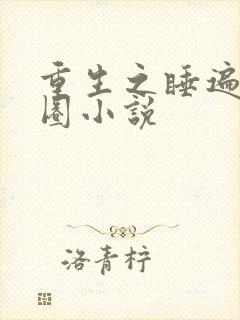 重生之睡遍
圈小说
洛青柠